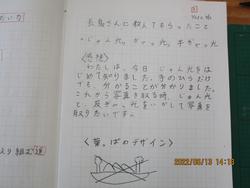 長島さんに教えてもらったこと
・じゅん光、ぎゃっ光、半ぎゃっ光
〈感想〉
わたしは、今日じゅん光をは
じめて知りました。手のひらだけ
でも、分かることが分かりました。
これから写真を取る時、じゅん光
と、反ぎゃっ光をいかして写真を
取りたいです。
〈葉っぱのデザイン〉
2022/06/13 14:18